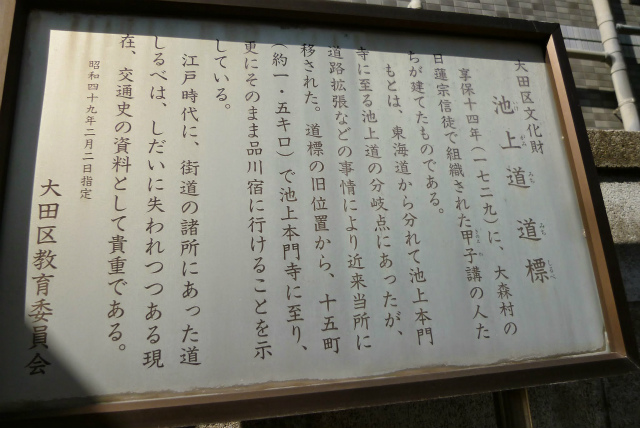 大田区文化財
池上道 道標
いけ がみ みち みち しるべ
享保十四年(一七二九)に、大森村の
日蓮宗信徒で組織された甲子講の人た
ちが建てたものである。
もとは、東海道から分れて池上本門
寺に至る池上道の分岐点にあったが、
道路拡張などの事情により近来当所に
移された。道標の旧位置から、十五町
(約一・五キロ)で池上本門寺に至り、
更にそのまま品川宿に行けることを示
している。
江戸時代に、街道の諸所にあった道
しるべは、しだいに失われつつある現
在、交通史の資料として貴重である。
昭和四十九年二月二日指定
大田区教育委員会